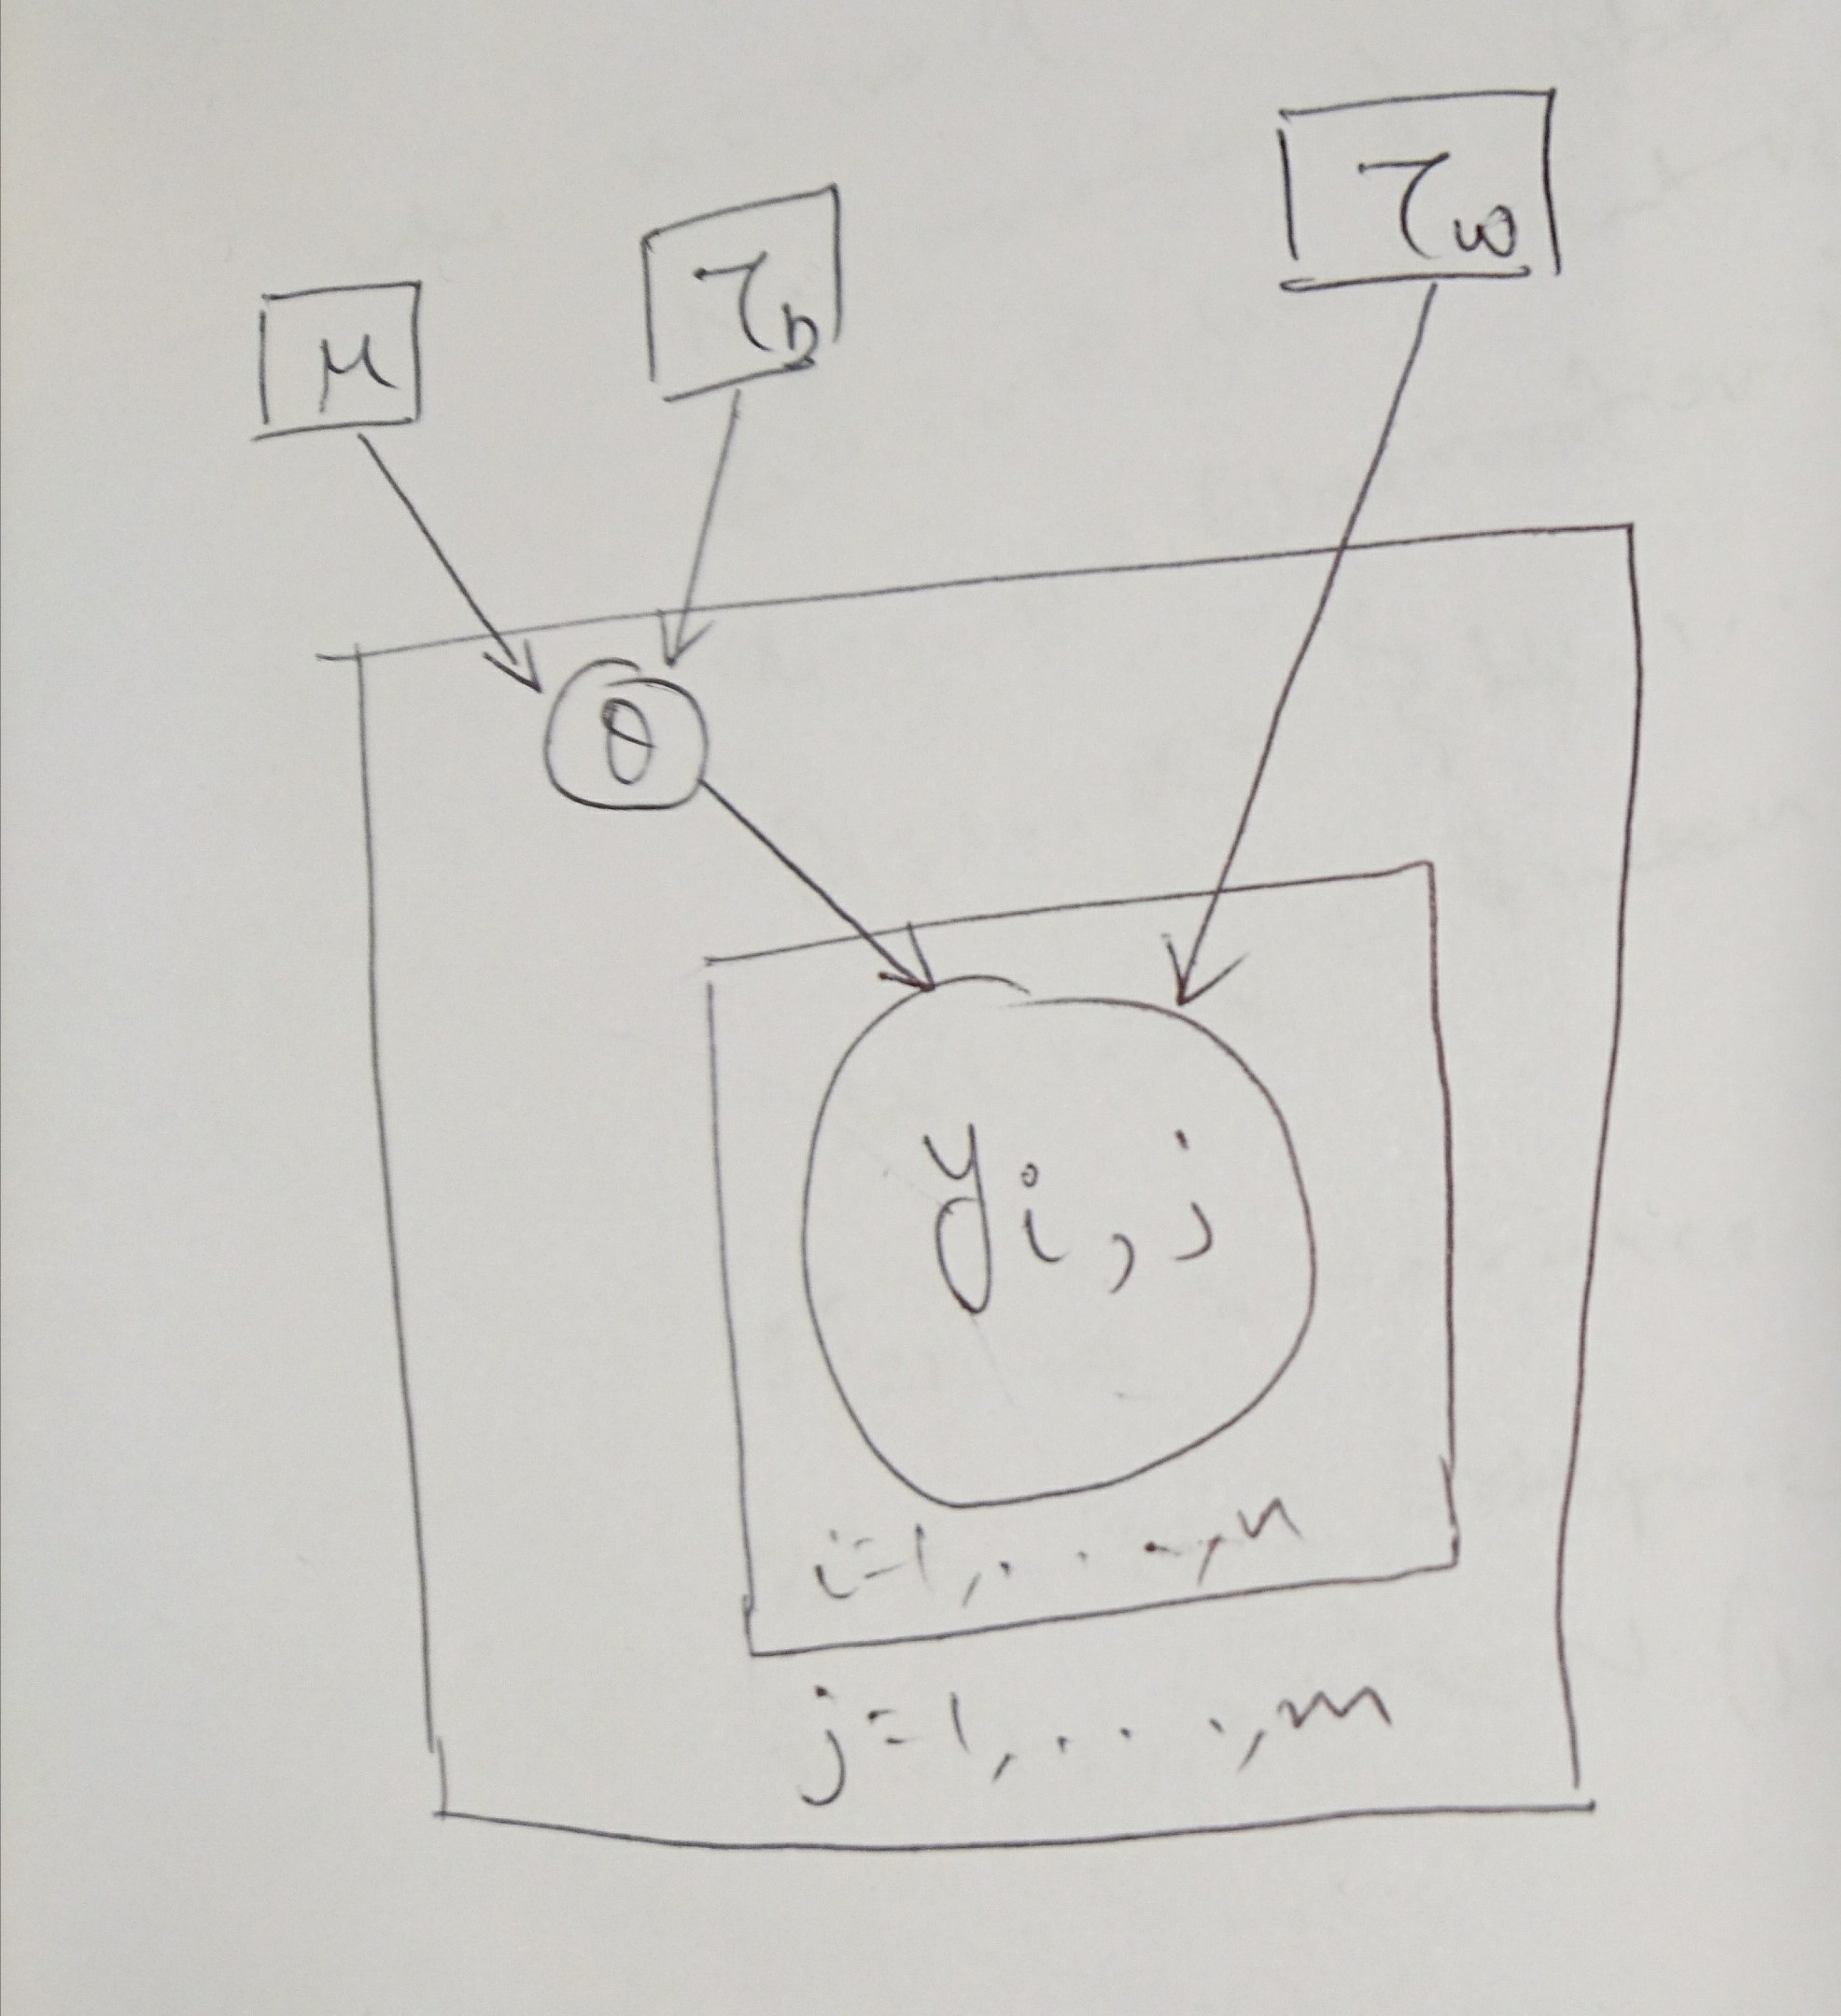 μ
τb
τω
θ
yi,j
i=1,...,n
j=1,...,m